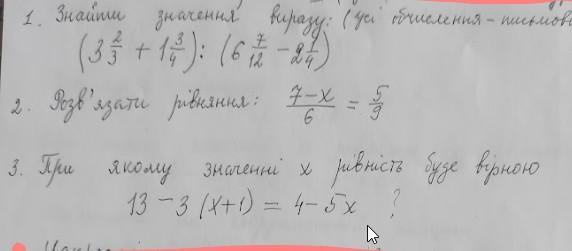 1. Знайти значення виразу: (усі обчислення - письмово
(3 2/3 + 1 3/4) : (6 7/12 - 2 1/4)
2. Розв'язати рівняння: (7-x)/6 = 5/9
3. При якому значенні x рівність буде вірною
13 - 3 (x+1) = 4 - 5x ?